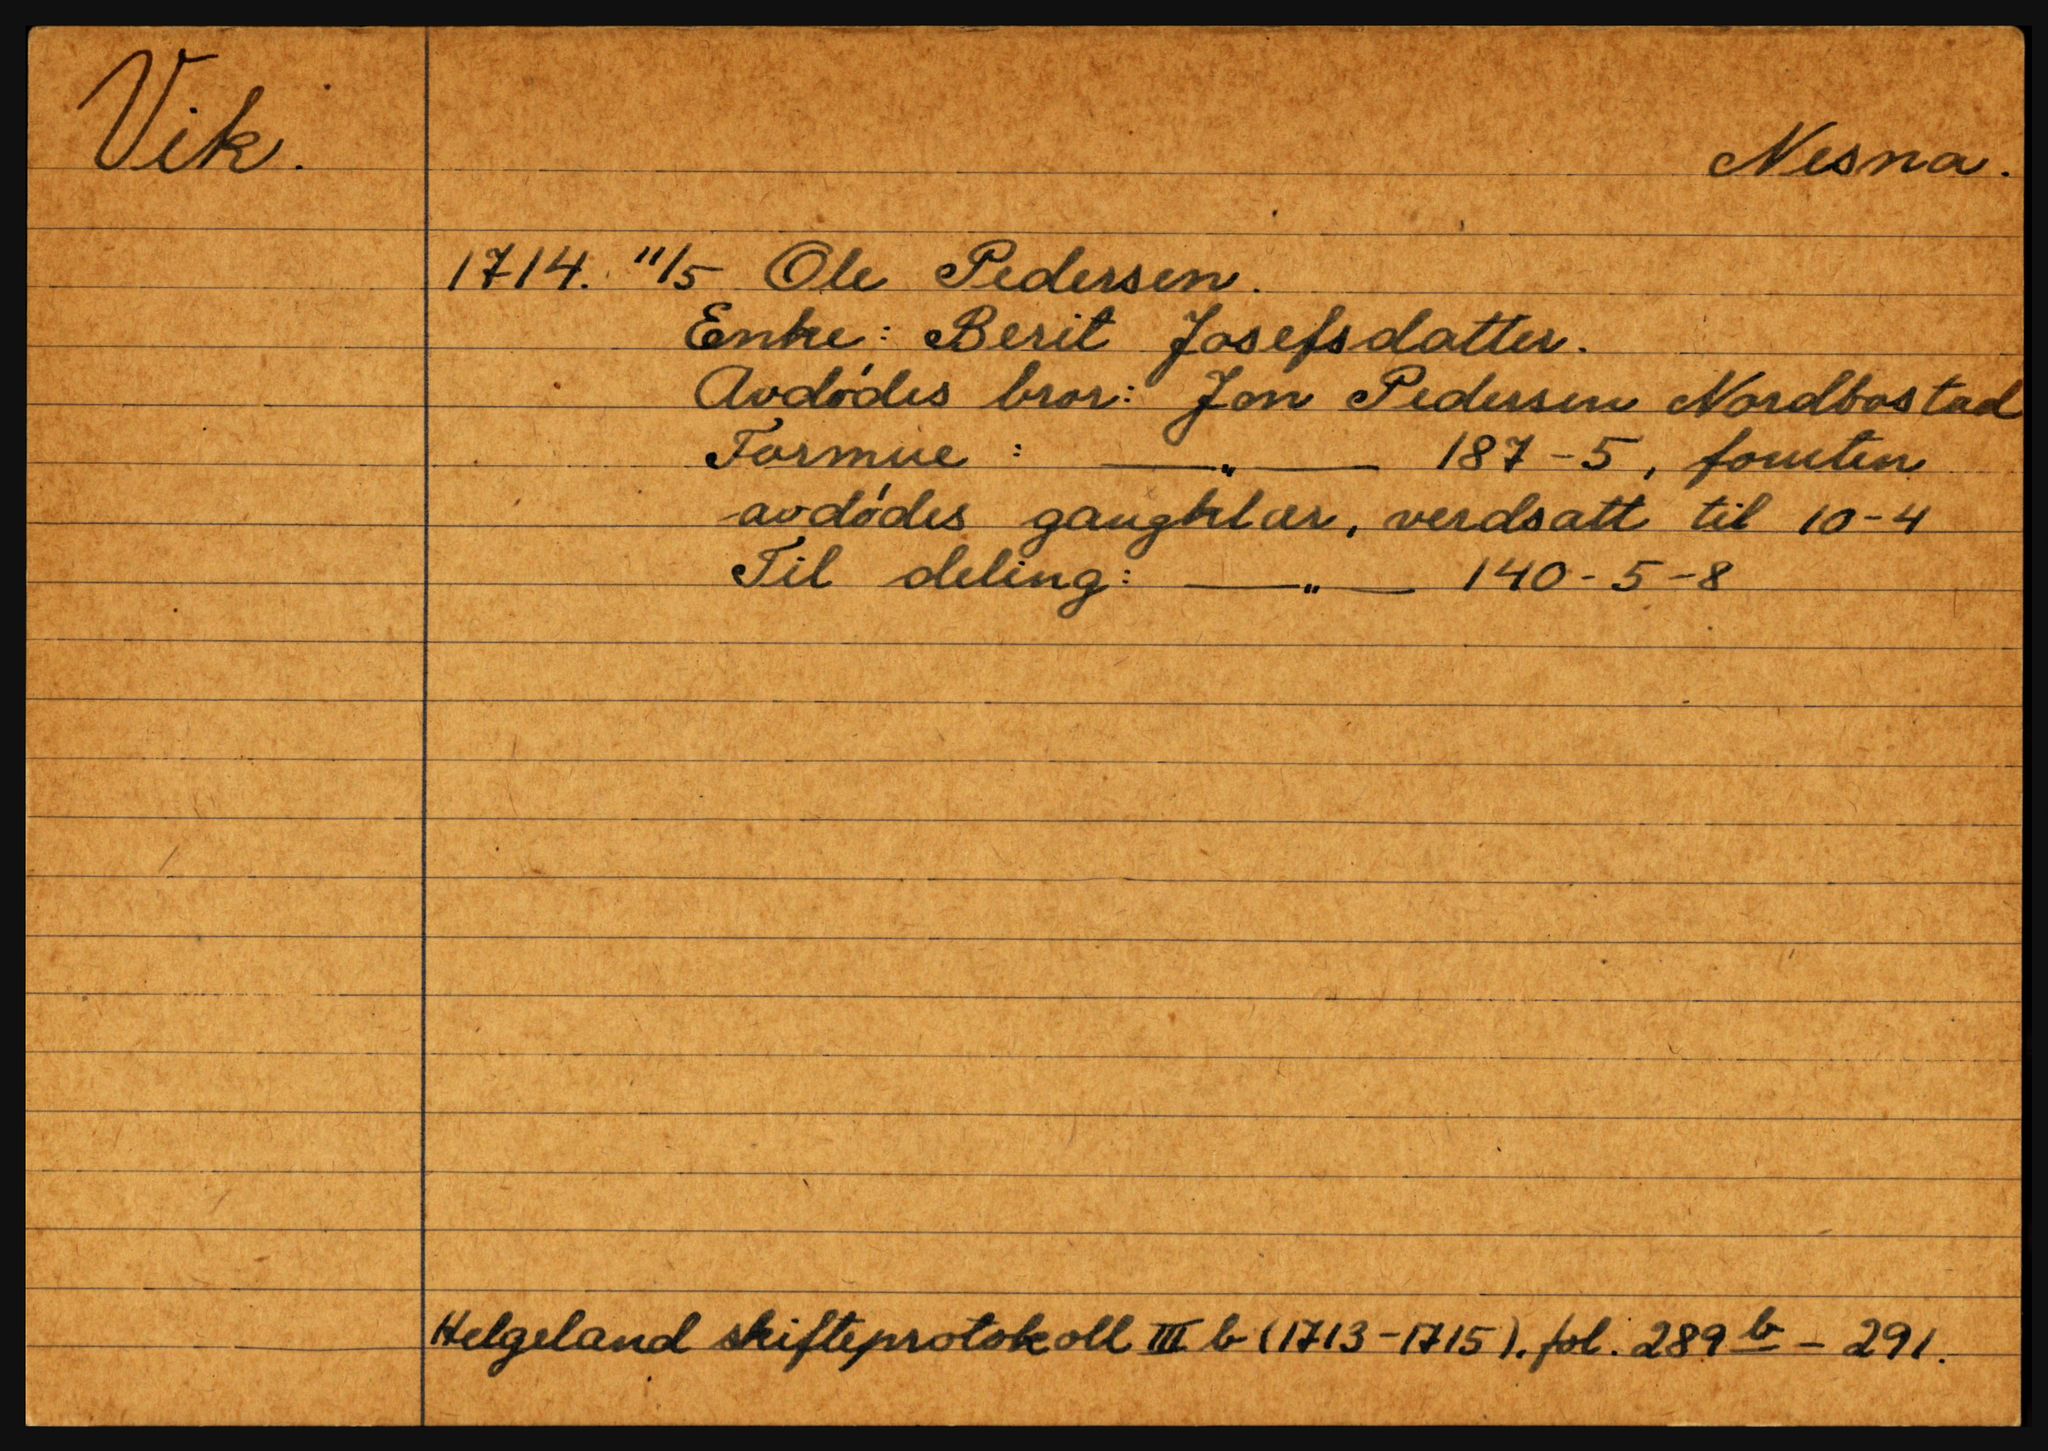 Vik.
Nesna.
1714. 11/5 Ole Pedersen.
Enke: Berit Josefsdatter.
Avdødes bror: Jon Pedersen Nordbostad
Formue : —„— 187-5, foruten
avdødes gangklær, verdsatt til 10-4
Til deling: —„— 140-5-8
Helgeland skifteprotokoll III b (1713-1715). fol. 289 b - 291.